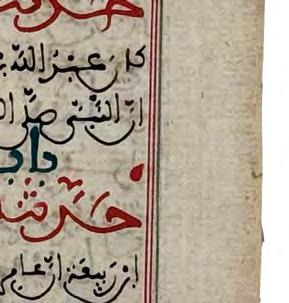 حدثنا
كان عبد الله
ان النبي صلى
باب
حدثنا
ابن ربيعة ان عامر